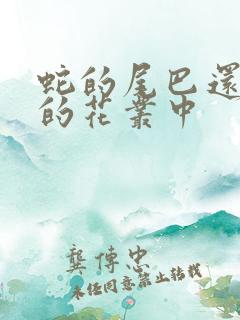 蛇的尾巴還
的花叢中
龔傳忠
未经同意禁止转载